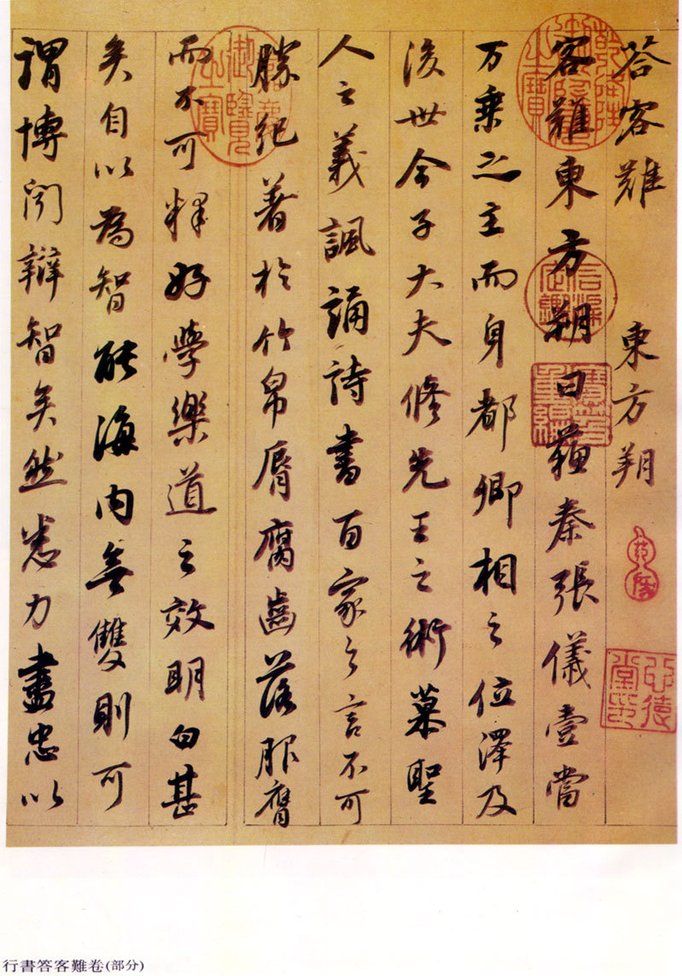 答客難　東方朔
客難東方朔曰蘇秦張儀壹當
万乗之主而身都卿相之位澤及
後世今子大夫修先王之術慕聖
人之義諷誦詩書百家之言不可
勝紀著於竹帛脣腐齒落服膺
而不可釋好學樂道之效明白甚
矣自以為智能海内無雙則可
謂博聞辯智矣然悉力盡忠以
乾隆御覽之寶
行書答客難卷(部分)